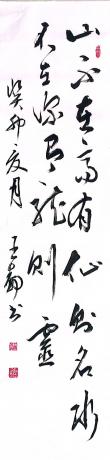 山不在高有仙則名水
不在深有龍則靈
癸卯夏月 王